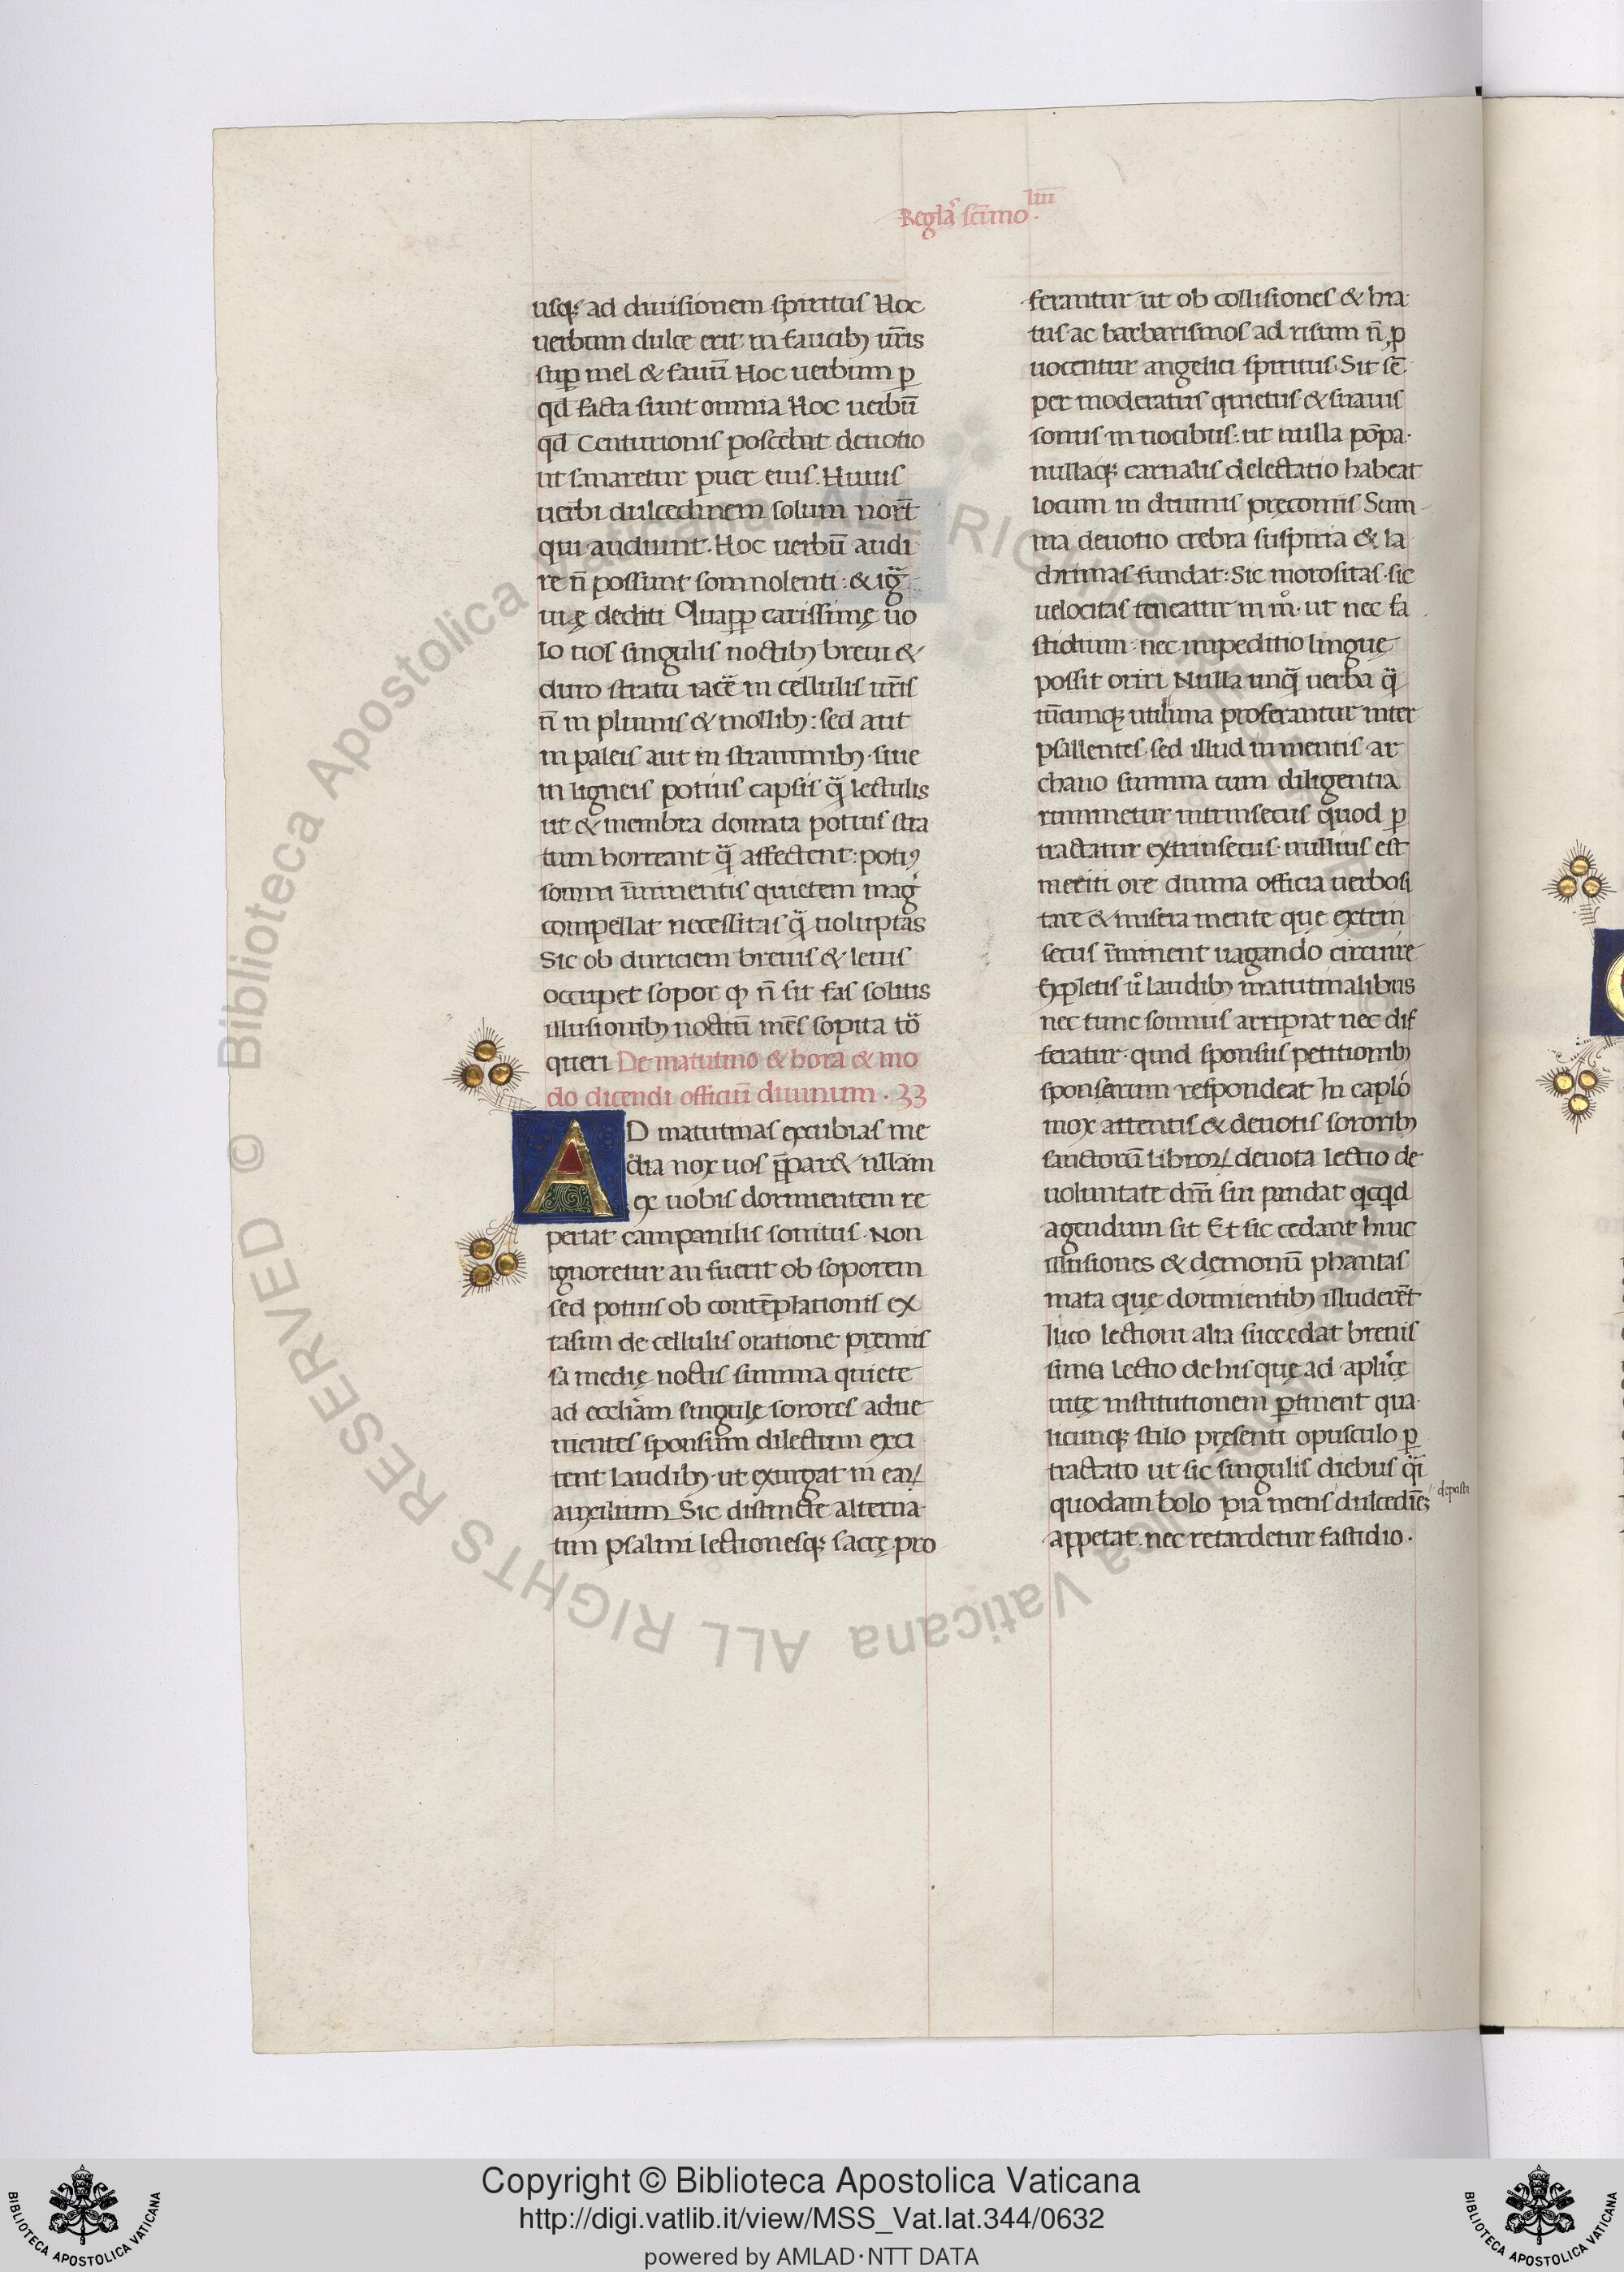 Regla sc̄imo · liiii
usq; ad diuisionem spiritus Hoc
uerbum dulce erit in faucib; ur̄is
sup mel & fauū Hoc uerbum p
qd̄ facta sunt omnia Hoc uerbū
qd̄ Centurionis poscebat deuotio
ut sanaretur puer eius. Huius
uerbi dulcedinem solum nor̄t
qui audiunt. Hoc uerbū audi
re n̄ possunt somnolenti: & ig
uię dediti Quapp carissimę uo
lo uos singulis noctib; breui &
duro stratu iacē in cellulis ur̄is
n̄ in plumis & mollib;: sed aut
in paleis aut in straminib; siue
in ligneis potius capsis q̄ lectulis
ut & membra domata potius stra
tum horreant q̄ affectent: poti9
somni īminentis quietem mag
compellat necessitas q̄ uoluptas
Sic ob duriciem breuis & leuis
occupet sopor qp n̄ sit fas solitis
illusionib; noctiū mēs sopita to
queri De matutino & hora & mo
do dicendi officiū diuinum · 33
AD matutinas excubias me
dia nox uos p̄par& nllam
ex uobis dormientem re
periat campanilis sonitus. Non
ignoretur an fuerit ob soporem
sed potius ob contēplationis ex
tasim de cellulis oratione premis
sa medię noctis summa quiete
ad eccliam singulę sorores adue
nientes sponsum dilectum exci
tent Laudib; ut exurgat in eaꝝ
auxilium Sic distincte alterna
tim psalmi lectionesq; sacrę pro
ferantur ut ob collisiones & hia
tus ac barbarismos ad risum n̄ p
uocentur angelici spiritus. Sit sē
per moderatus quietus & suauis
sonus in uocibus: ut nulla pōpa.
nullaq; carnalis delectatio habeat
locum in diuinis pręconiis Sum
ma deuotio crebra suspiria & la
chrimas fundat: Sic morositas sic
uelocitas teneatur in mo. ut nec fa
stidium: nec impeditio linguę
possit oriri Nulla unq̄ uerba q̄
tūcunq; utilima proferantur inter
psallentes sed illud in mentis ar
chano summa cum diligentia
ruminetur intrinsecus quod p
tractatur extrinsecus. nullius est
meriti ore diuina officia uerbosi
tare & misera mente que extrin
secus īminent uagando circuire
Expletis u̇ laudib; matutinalibus
nec tunc somnus arripiat nec dif
feratur quid sponsus petitionib;
sponsarum respondeat In caplo
mox attentis & deuotis sororib;
sanctorū Libroꝝ deuota lectio de
uoluntate dn̄i sui pandat qcqd
agendum sit Et sic cedant huic
illusiones & demonū phantas
mata quę dormientib; illuderēt
huic lectioni alia succedat breuis
sima lectio de his quę ad aplicę
uitę institutionem ptinent qua
licunq; stilo pręsenti opusculo p
tractato ut sic singulis diebus q̄i
quodam bolo pia mens dulcedīes
depasta
appetat. nec retardetur fastidio.
© Biblioteca Apostolica Vaticana ALL RIGHTS RESERVED
Copyright © Biblioteca Apostolica Vaticana
http://digi.vatlib.it/view/MSS_Vat.lat.344/0632
powered by AMLAD·NTT DATA
BIBLIOTECA APOSTOLICA VATICANA
BIBLIOTECA APOSTOLICA VATICANA